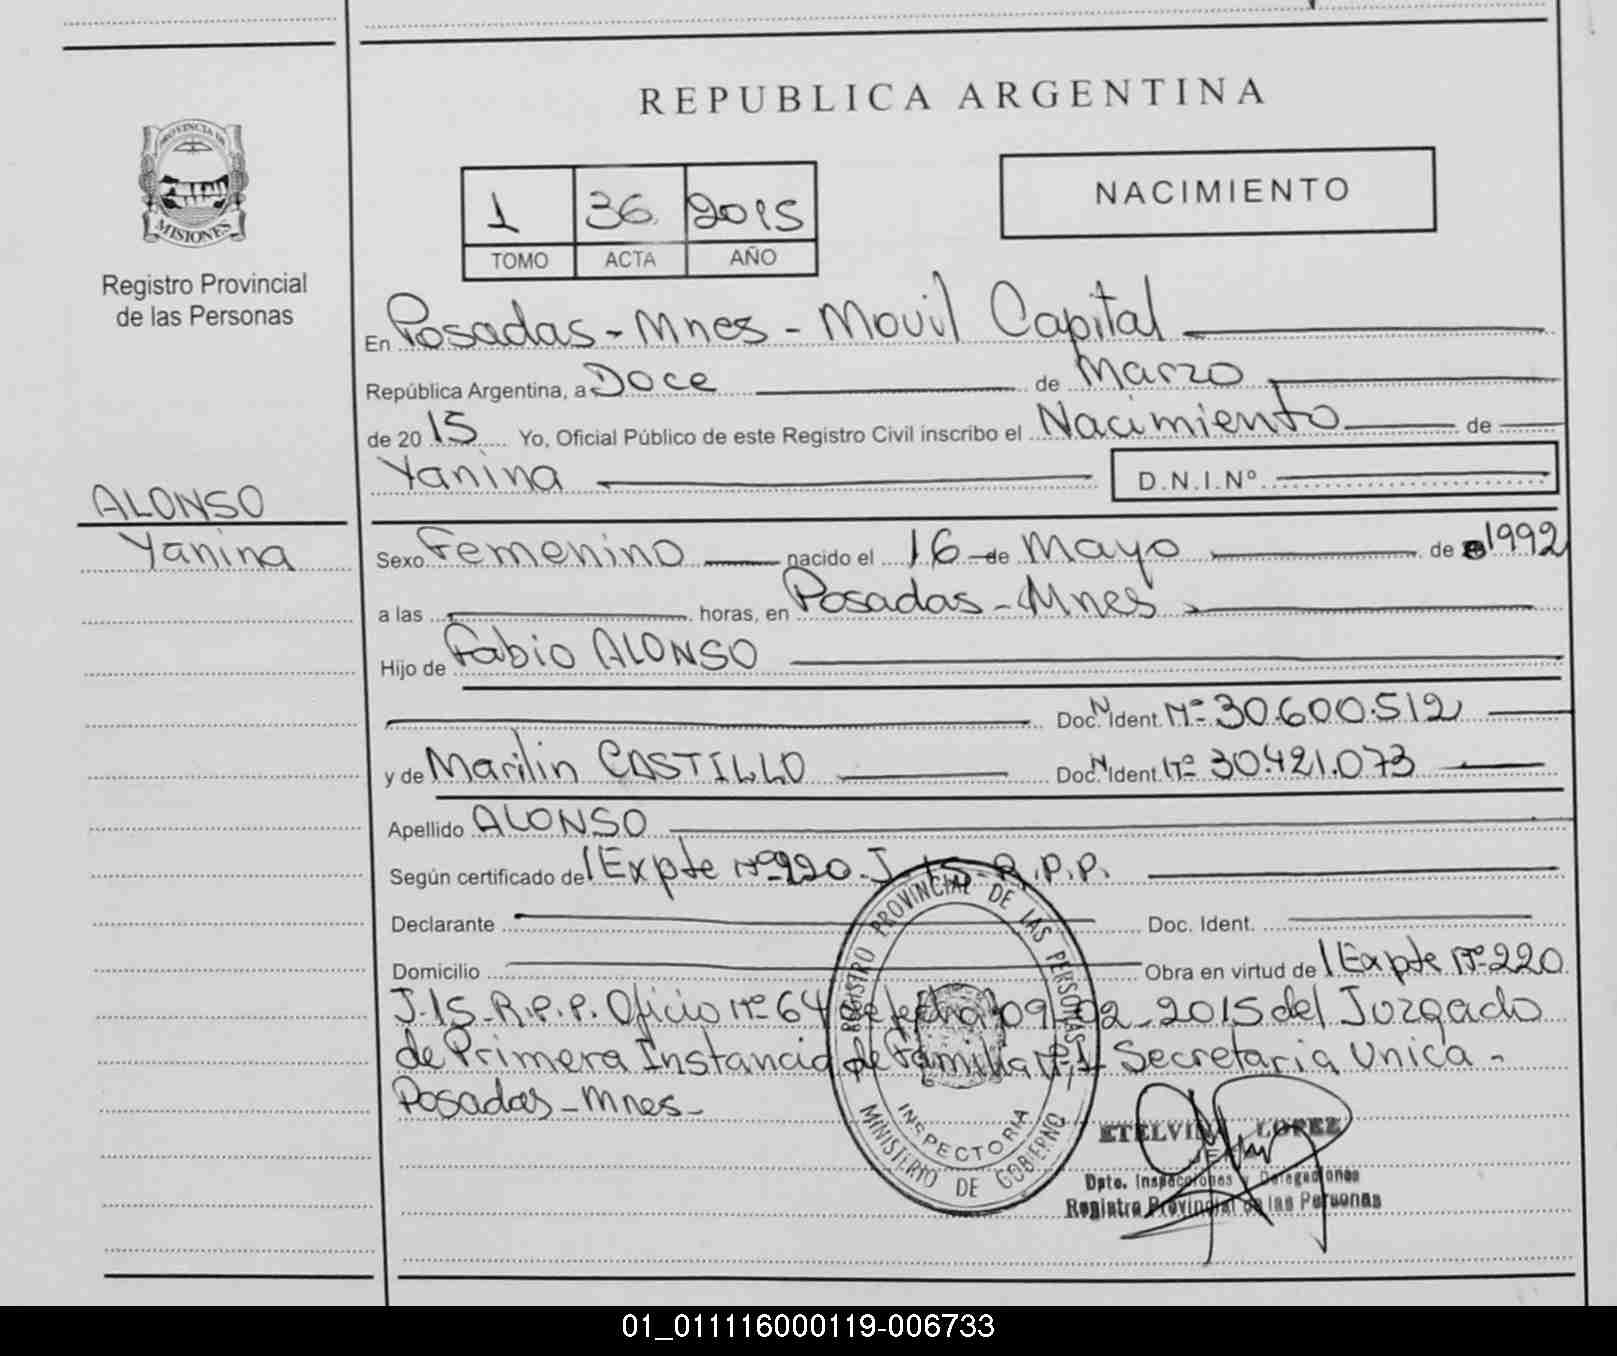 REPUBLICA ARGENTINA
PROVINCIA DE
MISIONES
Registro Provincial
de las Personas
1 36 2015
TOMO ACTA AÑO
NACIMIENTO
En Posadas - Mnes - Movil Capital
República Argentina, a Doce de Marzo
de 20 15 Yo, Oficial Público de este Registro Civil inscribo el Nacimiento de
Yanina D.N.I.Nº
ALONSO
Yanina
Sexo Femenino nacido el 16 de Mayo de 1992
a las horas, en Posadas - Mnes
Hijo de Fabio ALONSO
Doc. Ident. Nº 30.600.512
y de Marilin CASTILLO Doc. Ident. Nº 30.421.073
Apellido ALONSO
Según certificado de Expte Nº 220. J. 15. R.P.P.
Declarante Doc. Ident.
Domicilio Obra en virtud de Expte Nº 220
J-15-R.P.P. Oficio Nº 64 de fecha 09-02-2015 del Juzgado
de Primera Instancia de Familia Nº 1 Secretaria Unica -
Posadas - Mnes -
REGISTRO PROVINCIAL DE LAS PERSONAS
INSPECTORIA
MINISTERIO DE GOBIERNO
ETELVINA LOPEZ
JEFE
Dpto. Inspecciones y Delegaciones
Registro Provincial de las Personas
01_011116000119-006733